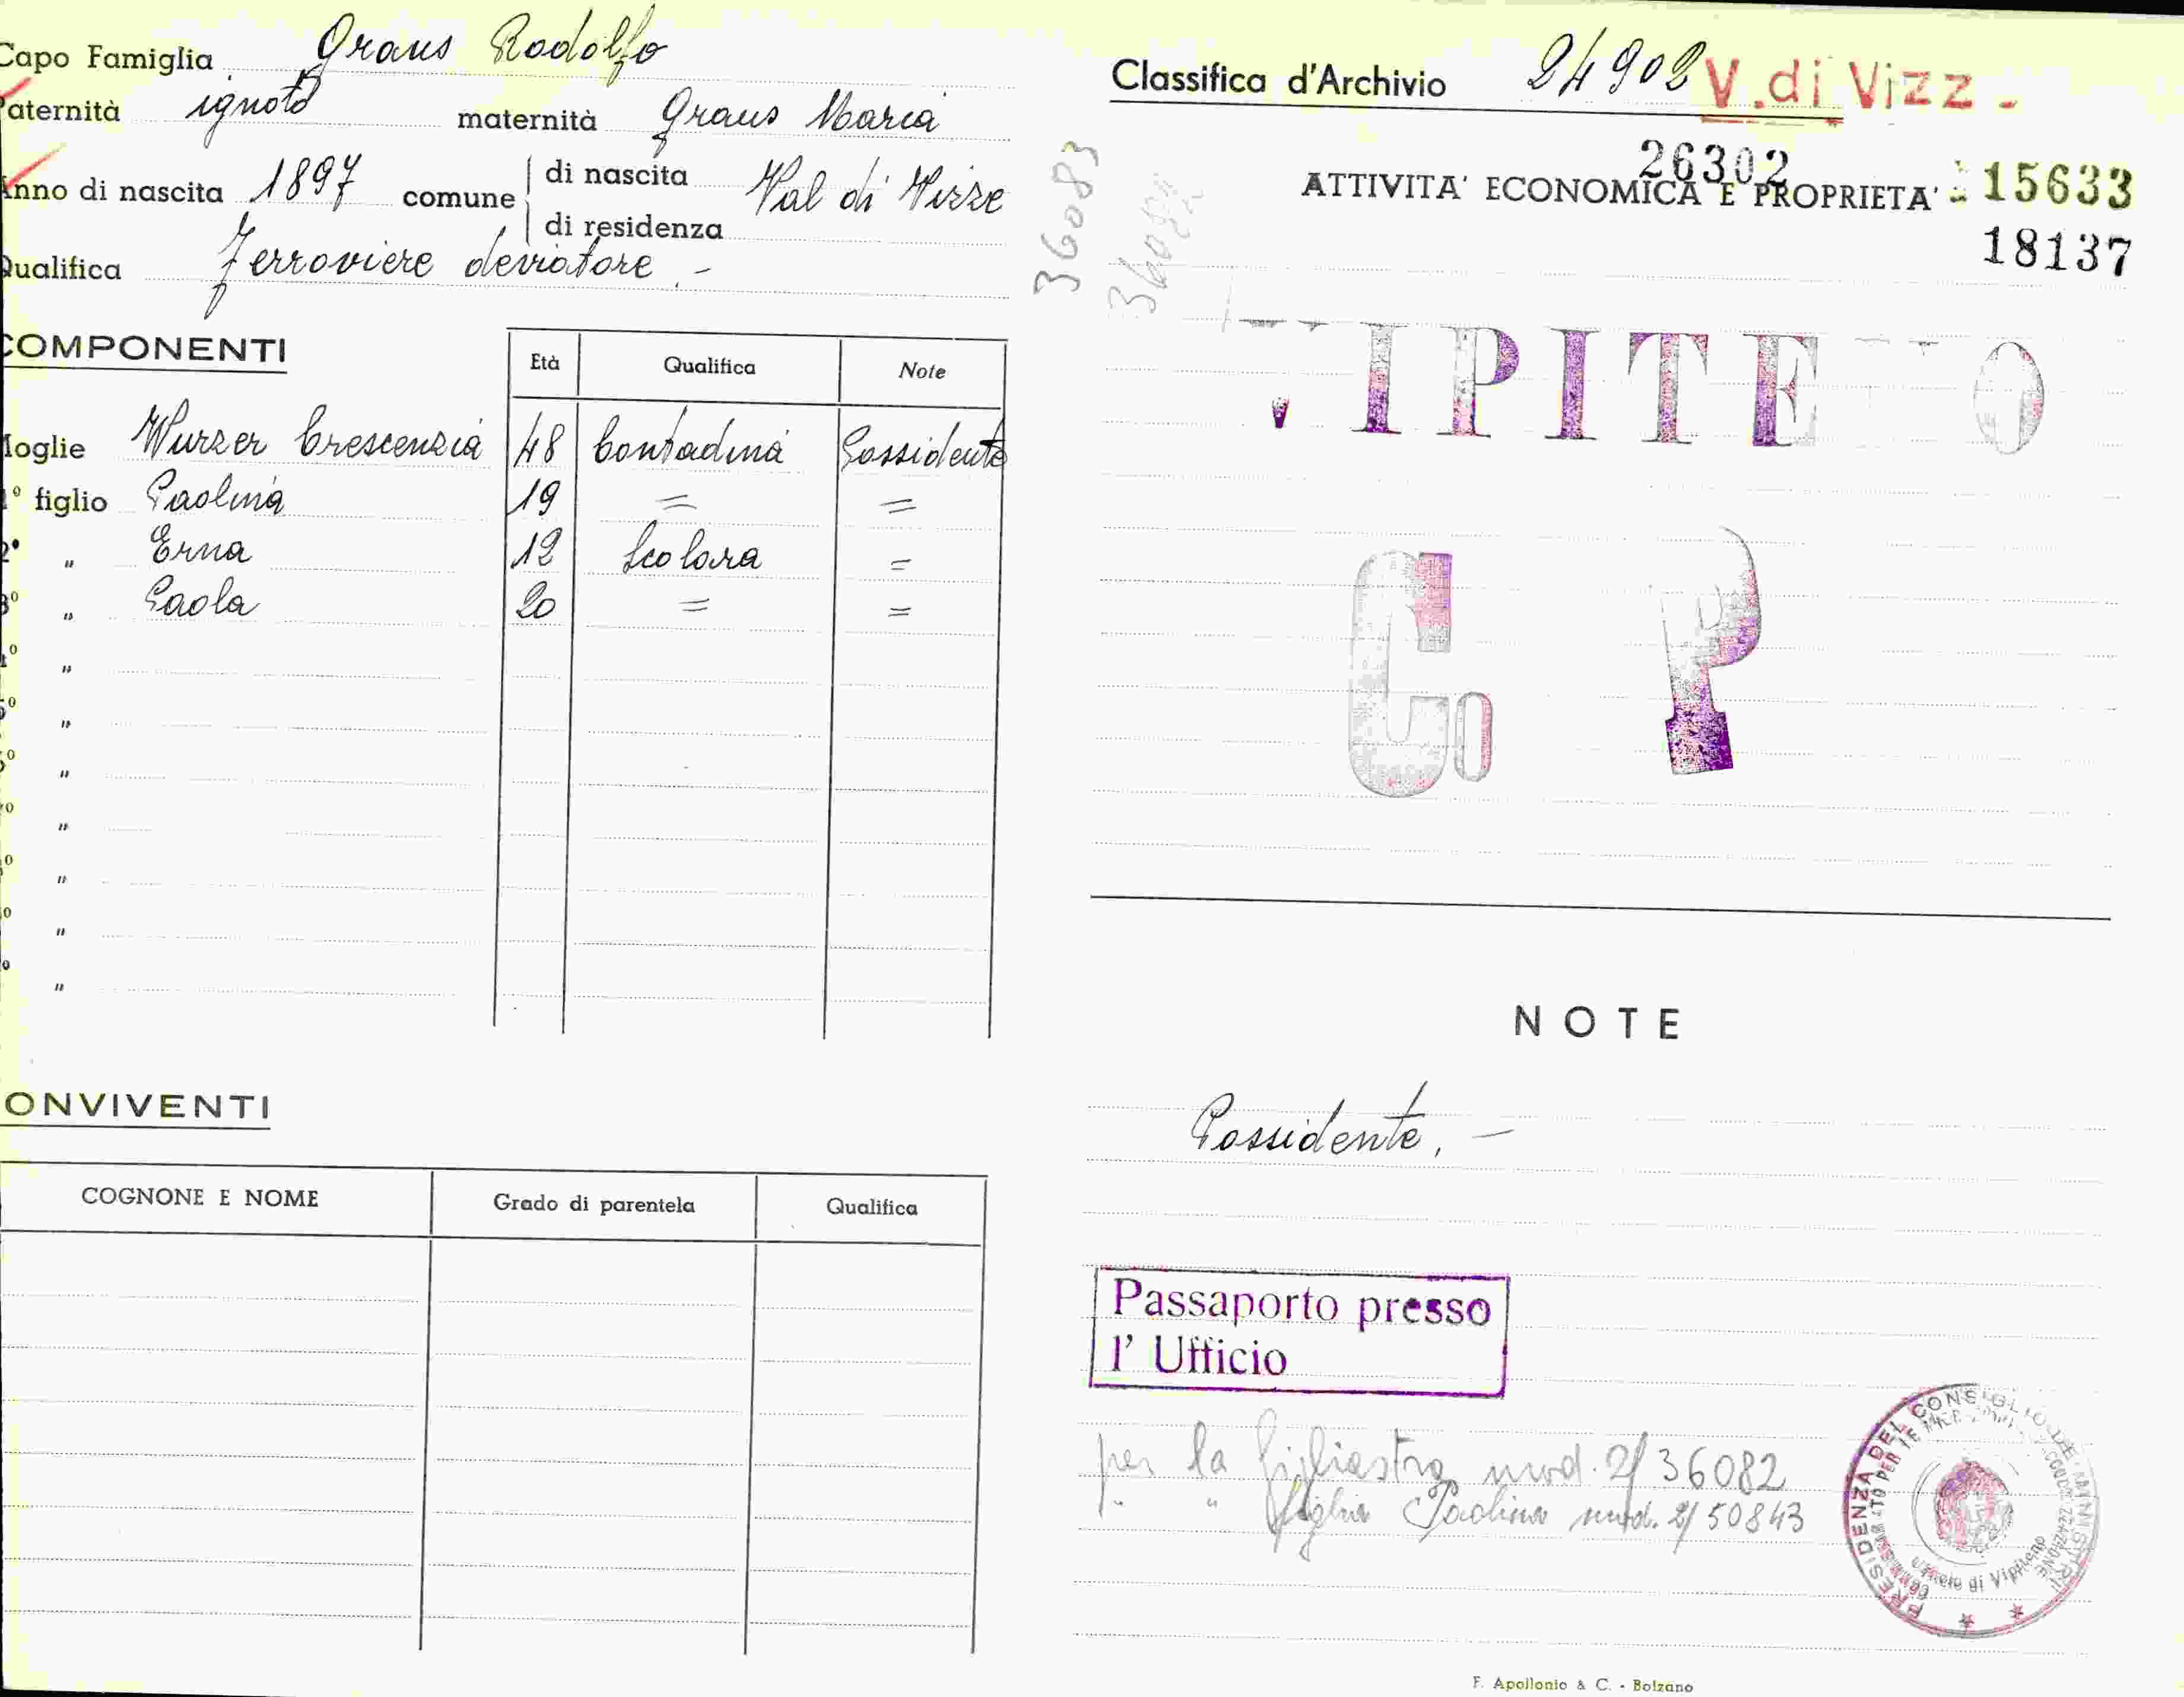 Capo Famiglia Graus Rodolfo
Paternità ignoto maternità Graus Maria
Anno di nascita 1897 comune di nascita Val di Vizze
di residenza
Qualifica Ferroviere deviatore. -
COMPONENTI
Età Qualifica Note
Moglie Wurzer Crescenzia 48 Contadina Possidente
1° figlio Paolina 19 = =
2° " Erna 12 Scolara =
3° " Paola 20 = =
4° "
5° "
6° "
7° "
"
"
"
CONVIVENTI
COGNONE E NOME Grado di parentela Qualifica
Classifica d'Archivio 24902 V. di Vizz -
26302
ATTIVITA' ECONOMICA E PROPRIETA' 15633
18137
36083
36082
VIPITENO
C P
NOTE
Possidente. -
Passaporto presso
l' Ufficio
per la figliastra mod. 2/ 36082
" " figlia Paolina mod. 2/ 50843
PRESIDENZA DEL CONSIGLIO DEI MINISTRI
Ufficio di Vipiteno
F. Apollonio & C. - Bolzano